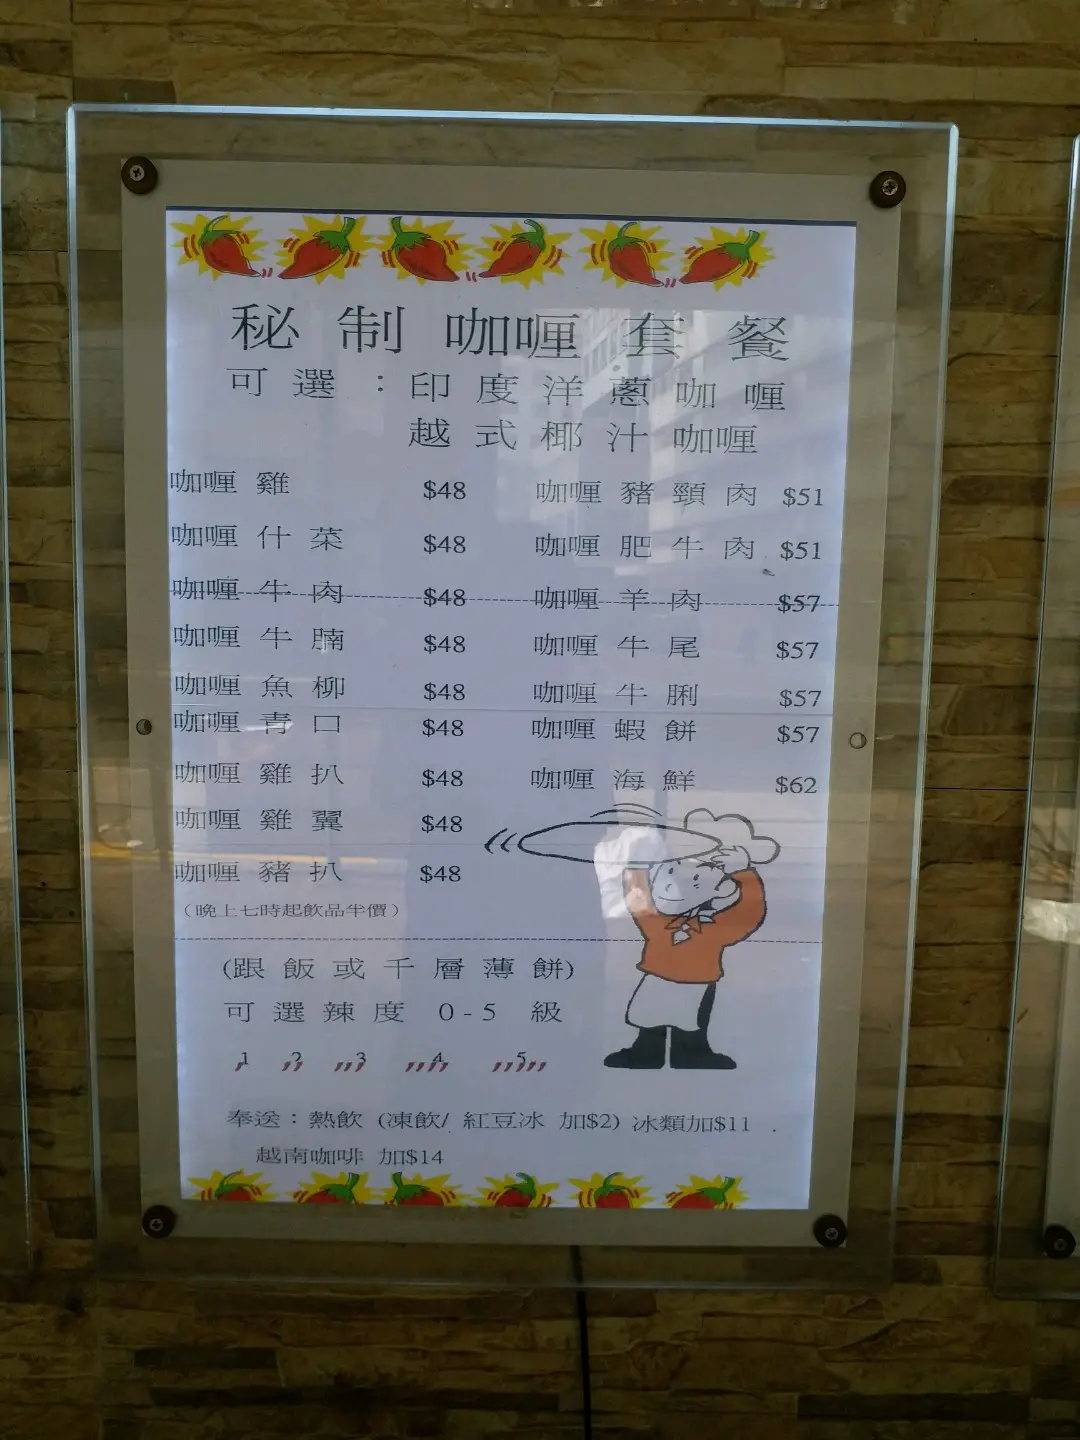 秘制咖喱套餐
可選：印度洋蔥咖喱
越式椰汁咖喱
咖喱雞 $48 咖喱豬頸肉 $51
咖喱什菜 $48 咖喱肥牛肉 $51
咖喱牛肉 $48 咖喱羊肉 $57
咖喱牛腩 $48 咖喱牛尾 $57
咖喱魚柳 $48 咖喱牛脷 $57
咖喱青口 $48 咖喱蝦餅 $57
咖喱雞扒 $48 咖喱海鮮 $62
咖喱雞翼 $48
咖喱豬扒 $48
（晚上七時起飲品半價）
(跟飯或千層薄餅)
可選辣度 0-5 級
1 2 3 4 5
奉送：熱飲 (凍飲/ 紅豆冰 加$2) 冰類加$11 .
越南咖啡 加$14